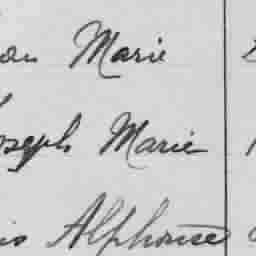 Marie
Joseph Marie
Alphonse